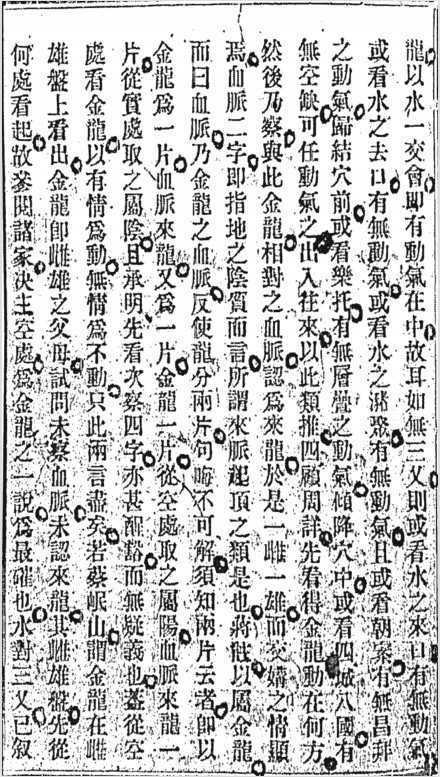 龍以水一交會即有動氣在中故耳如無三叉則或看水之來口有無動氣
或看水之去口有無動氣或看水之潴聚有無動氣且或看朝案有無昌拜
之動氣歸結穴前或看樂托有無層疊之動氣傾降穴中或看四城八國有
無空缺可任動氣之出入往來以此類推四顧周詳先看得金龍動在何方
然後乃察與此金龍相對之血脈認為來龍於是一雌一雄而交媾之情顯
焉血脈二字即指地之陰質而言所謂來脈起頂之類是也蔣傳以屬金龍
而曰血脈乃金龍之血脈反使龍分兩片句晦不可解須知兩片云者即以
金龍為一片血脈來龍又為一片金龍一片從空處取之屬陽血脈來龍一
片從實處取之屬陰且承明先看次察四字亦甚醒豁而無疑義也蓋從空
處看金龍以有情為動無情為不動只此兩言盡矣若蔡岷山謂金龍在雌
雄盤上看出金龍即雌雄之父母試問未察血脈未認來龍其雌雄盤先從
何處看起故參閱諸家決主空處為金龍之一說為最確也水對三叉已叙